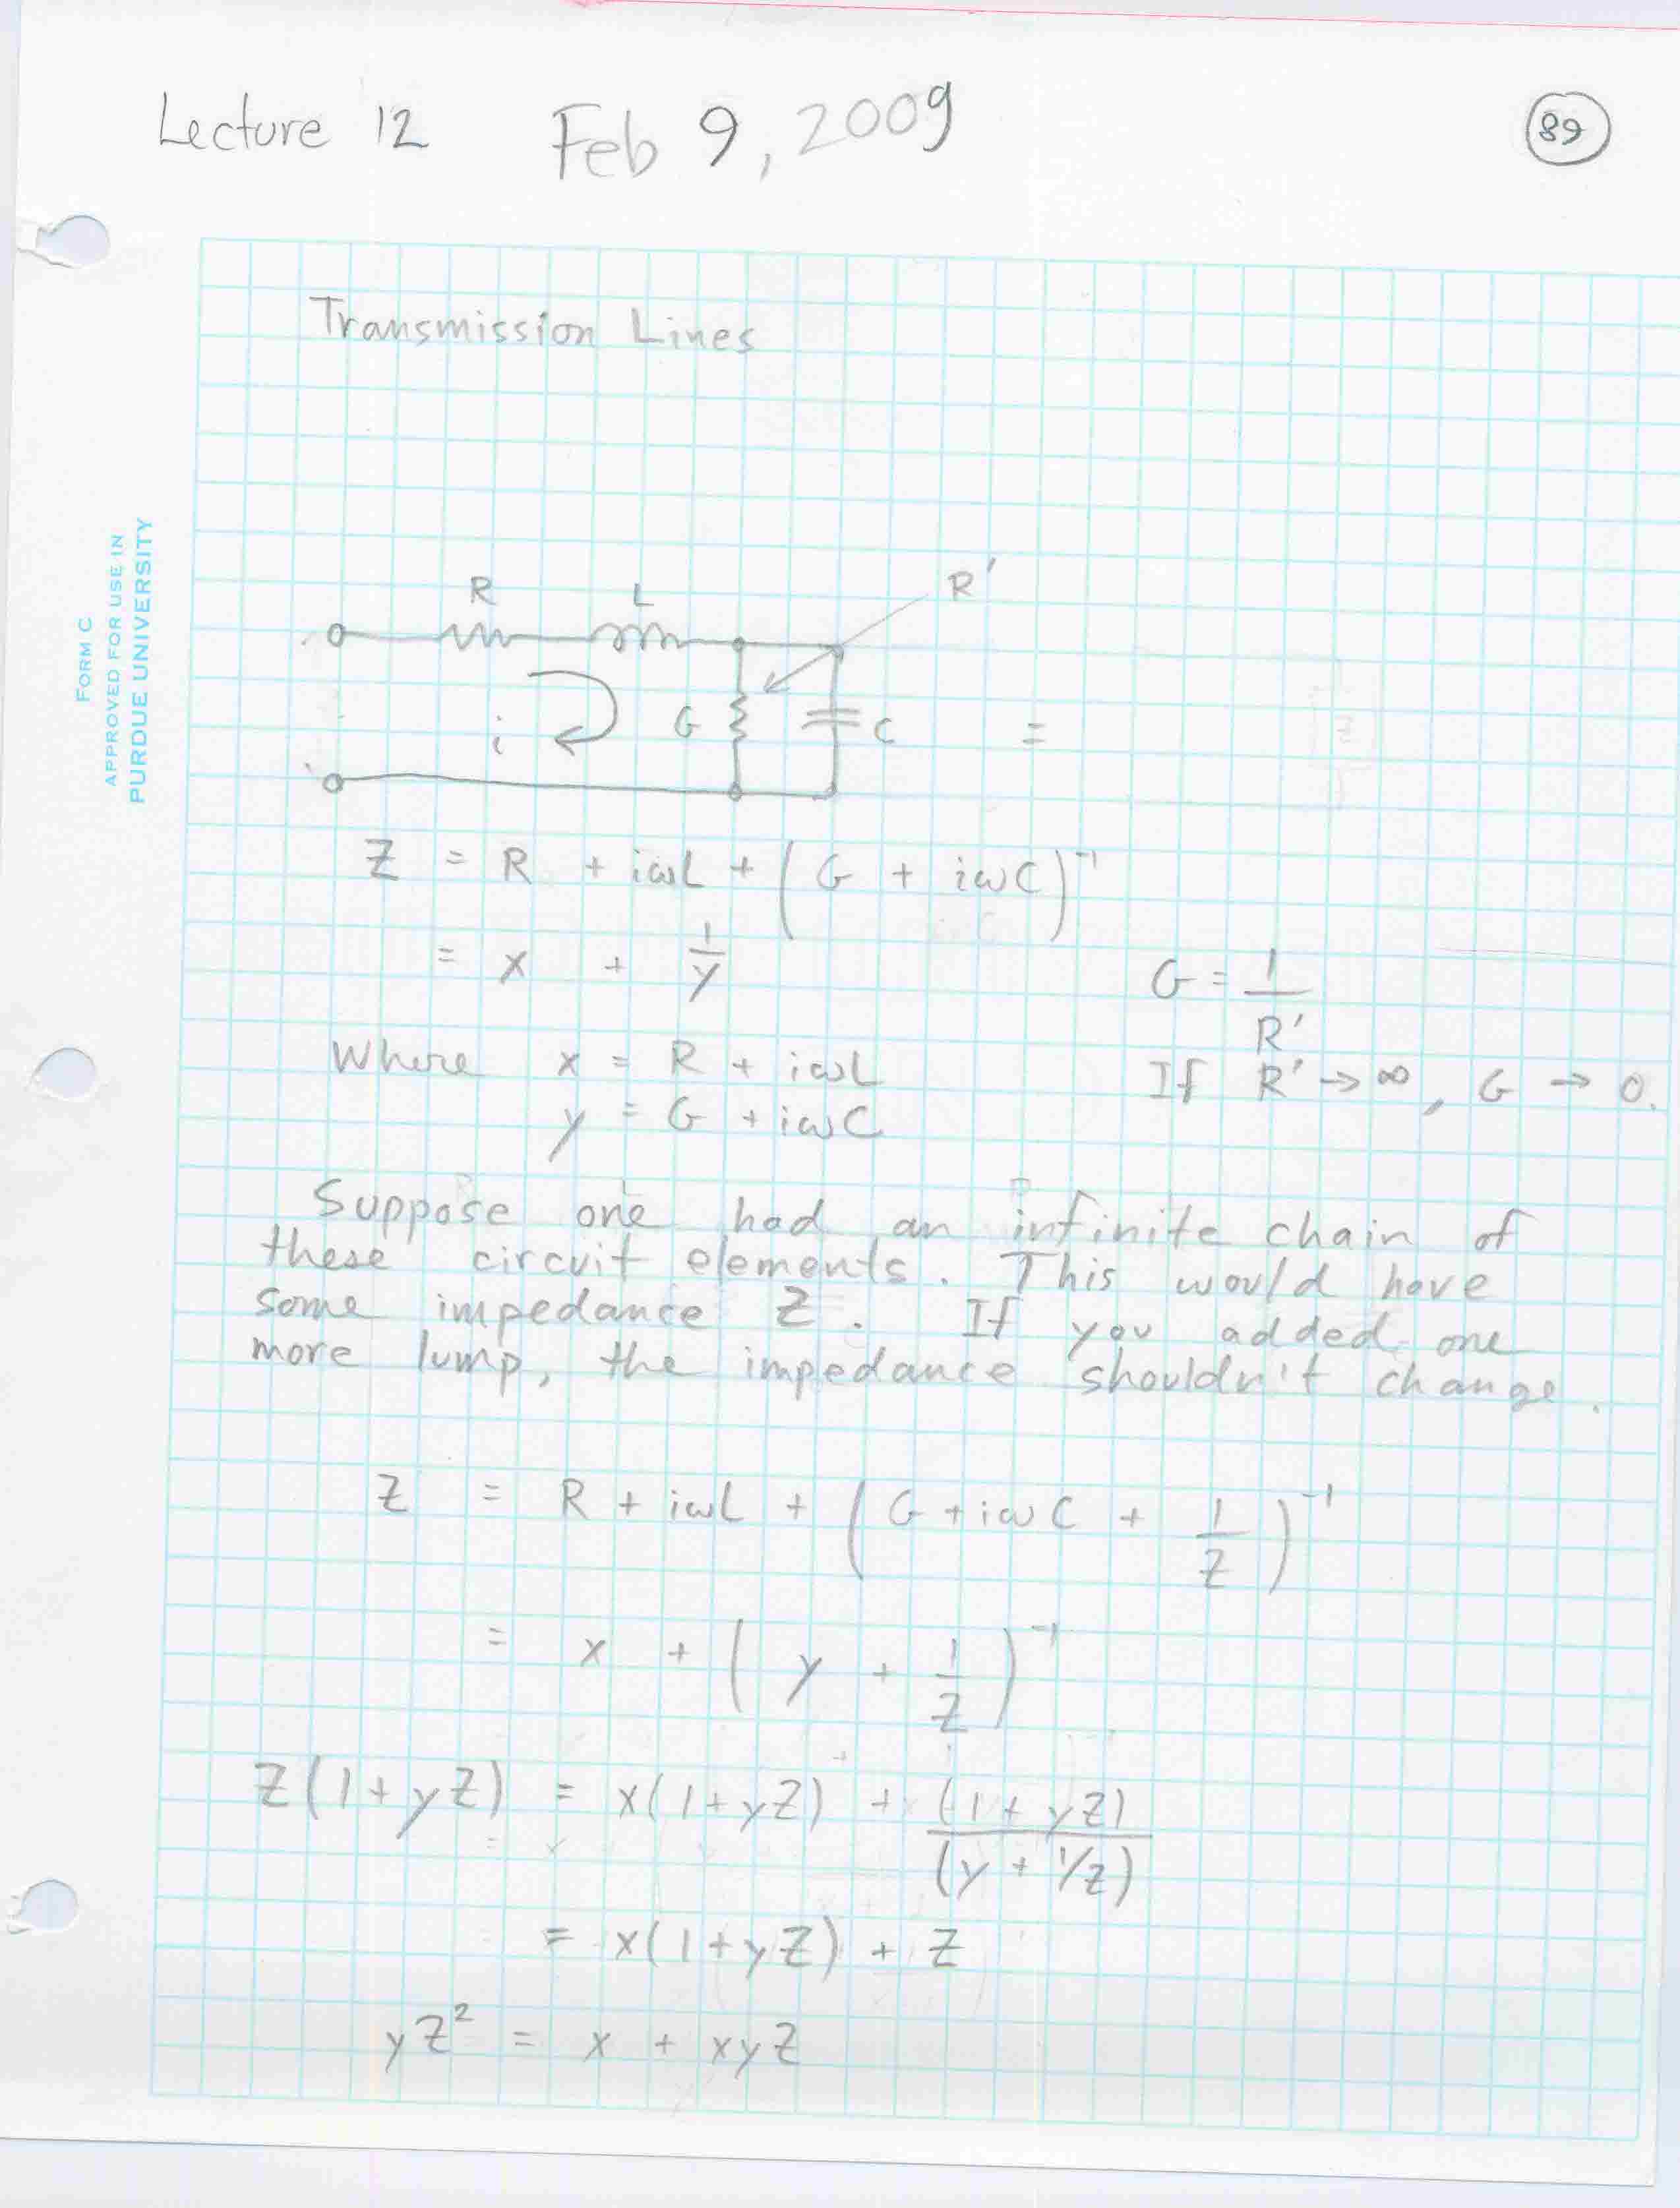 Lecture 12 Feb 9, 2009
89
Transmission Lines
FORM C
APPROVED FOR USE IN
PURDUE UNIVERSITY
R L R'
i G C =
Z = R + iωL + (G + iωC)⁻¹
= x + 1/y
G = 1/R'
Where x = R + iωL
If R' → ∞, G → 0.
y = G + iωC
Suppose one had an infinite chain of
these circuit elements. This would have
some impedance Z. If you added one
more lump, the impedance shouldn't change.
Z = R + iωL + (G + iωC + 1/Z)⁻¹
= x + (y + 1/Z)⁻¹
Z(1 + yZ) = x(1 + yZ) + (1 + yZ)/(y + 1/Z)
= x(1 + yZ) + Z
yZ² = x + xyZ